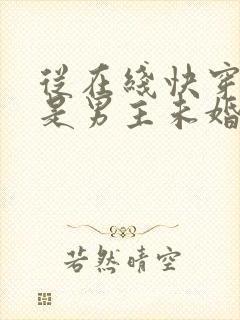 從在綫快穿
是男主未婚
若然晴空